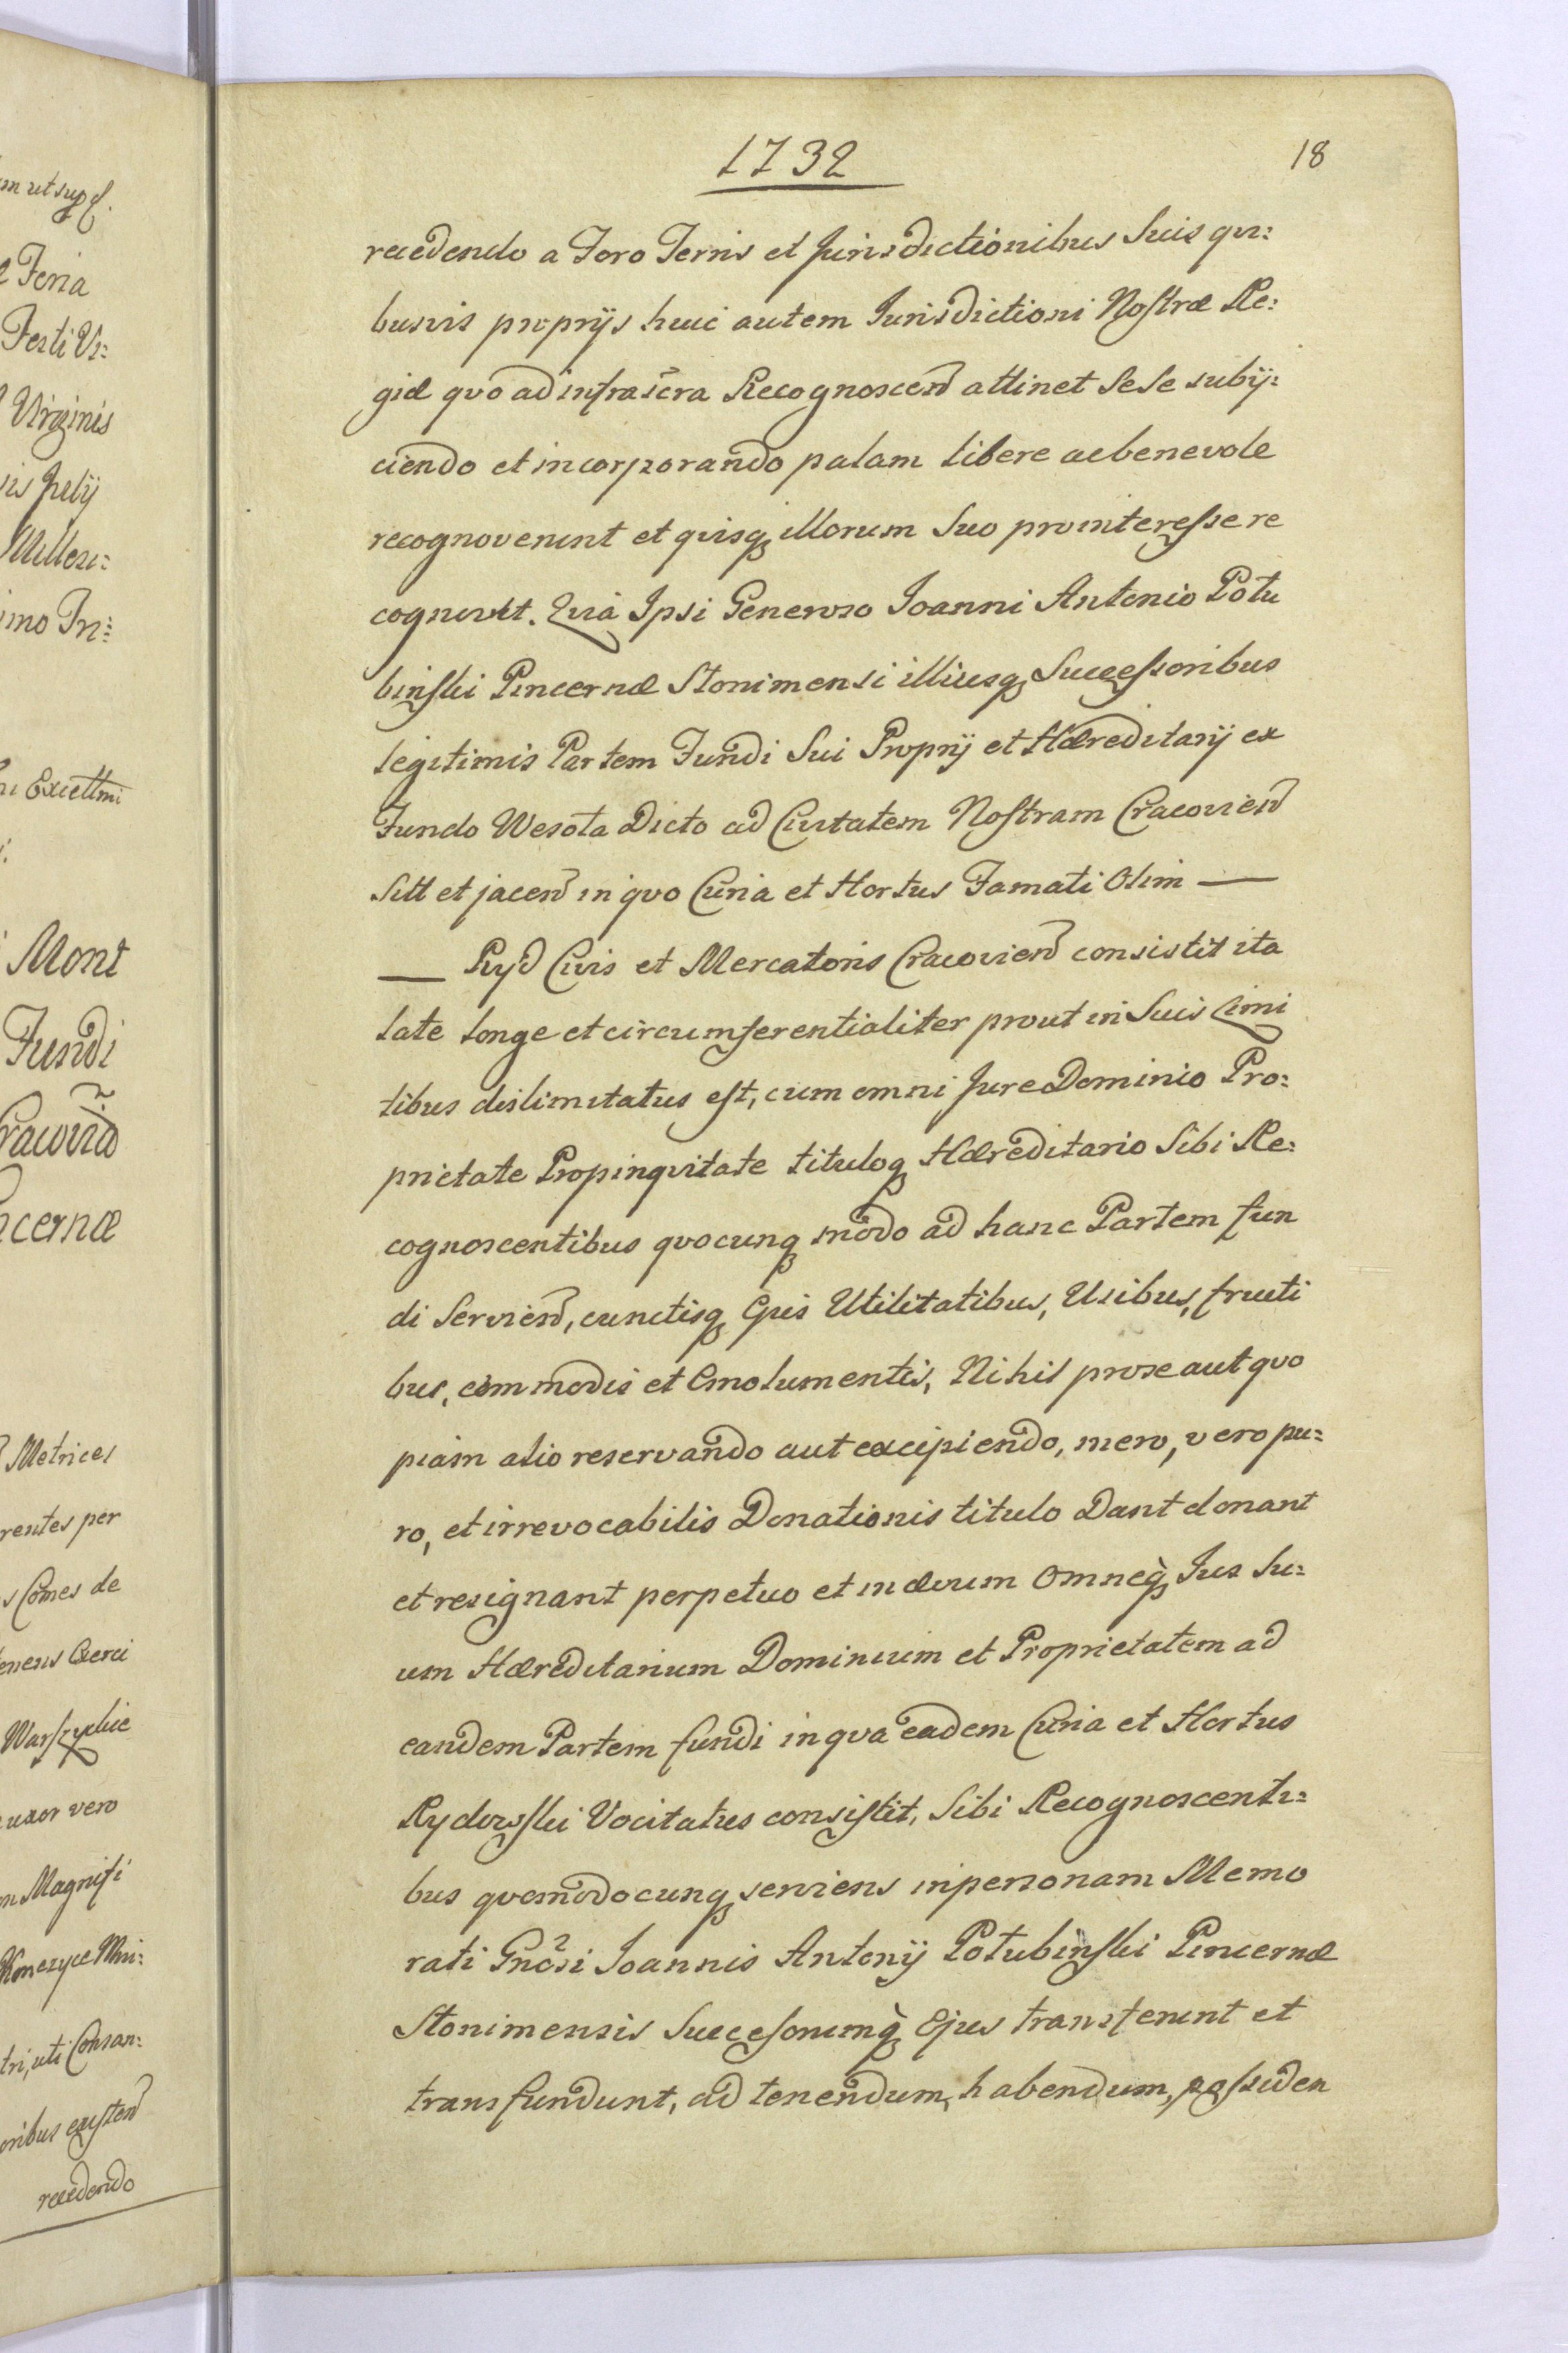 1732
18
recedendo a Foro Terris et Jurisdictionibus Suis qui:
busvis proprijs huic autem Jurisdictioni Nostræ Re:
giæ qvo ad infrascra Recognoscen attinet Sese subij:
ciendo et incorporando palam libere ac benevole
recognoverunt et qvisq illorum Suo pro interesse re
cognovit. Qvia Ipsi Generoso Joanni Antonio Potu
binski Pincernæ Stonimensi illiusq Successoribus
legitimis Partem Fundi Sui Proprij et Hæreditarij ex
Fundo Wesoła Dicto ad Civitatem Nostram Cracovien
Sitt et jacen in qvo Curia et Hortus Famati Olim —
— Ryd Civis et Mercatoris Cracovien consistit ita
late longe et circumferentialiter prout in Suis Limi
tibus dislimitatus est, cum omni Jure Dominio Pro:
prietate Propinqvitate tituloq Hæreditario Sibi Re:
cognoscentibus qvocunq modo ad hanc Partem fun
di Servien, cunctisq Ejus Utilitatibus, Usibus, fructi
bus, commodis et Emolumentis, Nihil pro se aut qvo
piam alio reservando aut excipiendo, mero, vero pu:
ro, et irrevocabilis Donationis titulo Dant donant
et resignant perpetuo et in ævum Omneq Jus Su:
um Hæreditarium Dominium et Proprietatem ad
eandem Partem fundi in qva eadem Curia et Hortus
Rydowski Vocitatus consistit, Sibi Recognoscenti:
bus qvomodocunq serviens in personam Memo
rati Gnosi Joannis Antonij Potubinski Pincernæ
Stonimensis Succesorumq Ejus transferunt et
transfundunt, ad tenendum, habendum, possiden
m ut sup
Feria
Festi Vi:
Virginis
is Julij
Millesi:
imo Tri:
Excellmi
Mont
Fundi
racovia
cernæ
Metrices
rentes per
s Comes de
Warszyckie
uxor vero
Magnifi
tri, uti Consan:
oribus existen
recedendo